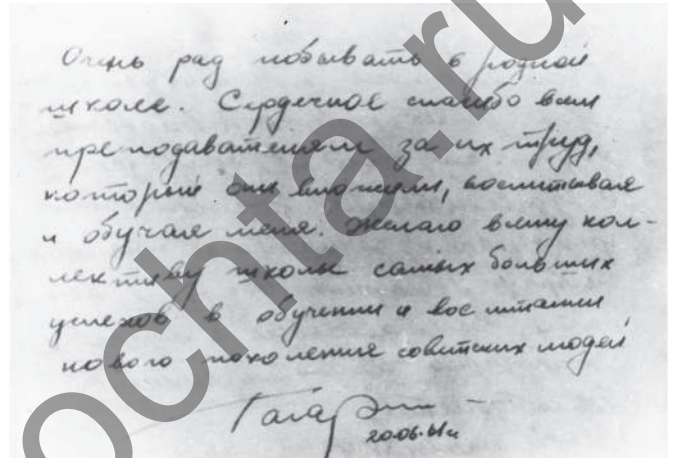 Очень рад побывать в родной
школе. Сердечное спасибо всем
преподавателям за их труд,
который они вложили, воспитывая
и обучая меня. Желаю всему кол-
лективу школы самых больших
успехов в обучении и воспитании
нового поколения советских людей
Гагарин
20.06.61г
ochta.ru